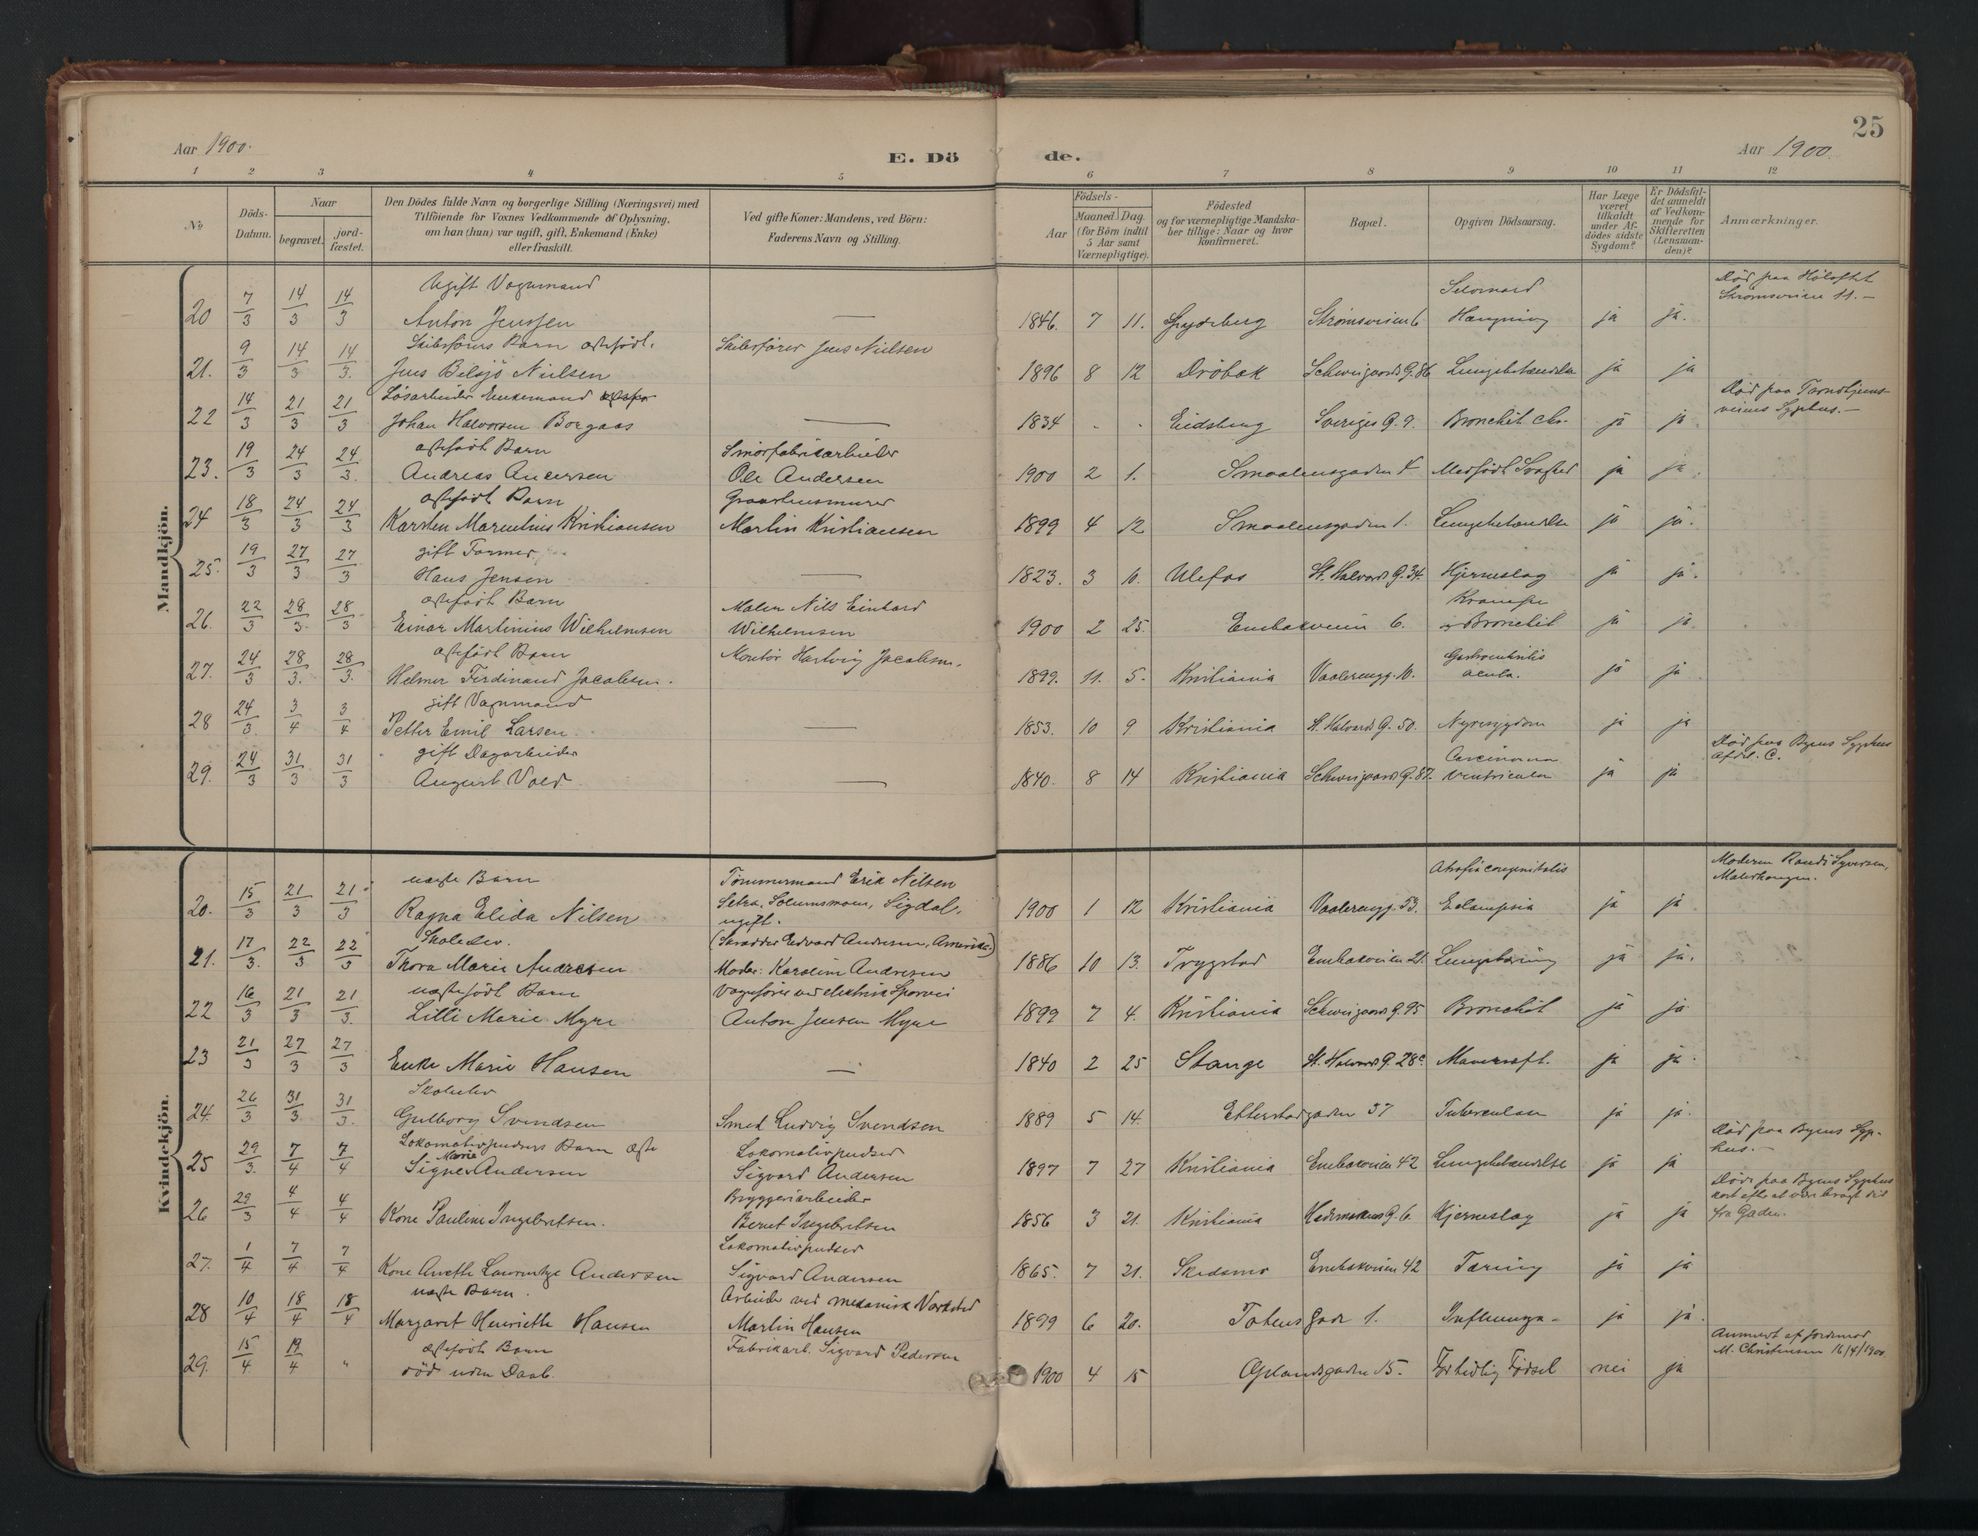 25
Aar 1900.
E. Dö
de.
Aar 1900.
1 2 3 4 5 6 7 8 9 10 11 12
No
Döds-Datum.
Naar
begravet.
jord-fæstet.
Den Dödes fulde Navn og borgerlige Stilling (Næringsvei) med
Tilföiende for Voxnes Vedkommende af Oplysning,
om han (hun) var ugift, gift, Enkemand (Enke)
eller fraskilt.
Ved gifte Koner: Mandens, ved Börn:
Faderens Navn og Stilling.
Födsels-
Aar
Maaned.
Dag.
(for Börn indtil
5 Aar samt
Værnepligtige).
Födested
og for værnepligtige Mandska-
ber tillige: Naar og hvor
konfirmeret.
Bopæl.
Opgiven Dödsaarsag.
Har Læge
været
tilkaldt
under Af-
dödes sidste
Sygdom?
Er Dödsfal-
det anmeldt
af Vedkom-
mende for
Skifteretten
(Lensman-
den)?
Anmærkninger.
Mandkjön.
Ugift Vognmand Selvmord Död paa Höloftet
20 7/3 14/3 14/3 Anton Jenssen — 1846. 7 11. Spydeberg Strömsveien 6 Hængning ja ja. Strömsveien 11.—
Skibsförers Barn ægtefödt. Skibsförer Jens Nielsen
21. 9/3 14/3 14/3. Jens Bilsjö Nielsen 1896 8 12 Dröbak Schweigaards G. 86 Lungebetændelse ja ja
Lösarbeider Enkemand Död paa Trondhjems-
22 14/3 21/3 21/3 Johan Halvorsen Borgaas — 1834 - - Eidsberg Sveriges G. 9. Bronchit chr. ja ja veiens Sygehus.—
ægtefödt Barn Smörfabrikarbeider
23. 19/3 24/3 24/3. Andreas Andersen Ole Andersen 1900 2 1. Smaalensgaden 4 Medfödt Svaghed ja ja.
ægtefödt Barn Graastensmurer
24 18/3 24/3 24/3 Karsten Marentius Kristiansen Martin Kristiansen 1899 4 12 Smaalensgaden 1. Lungebetændelse ja ja.
gift Former
25. 19/3 27/3 27/3 Hans Jensen — 1823. 3 10. Ulefos St. Halvards G. 34. Hjerneslag ja ja.
ægtefödt Barn Maler Nils Einhard Krampe
26. 22/3 28/3. 28/3 Einar Martinius Wilhelmsen Wilhelmsen 1900 2 25. Enebakveien 6. og Bronchit ja ja
ægtefödt Barn Montör Hartvig Jacobsen. Gastroenteritis
27. 24/3 28/3. 28/3. Helmer Ferdinand Jacobsen. 1899. 11. 5. Kristiania Vaalerengg. 10. acuta. ja ja
gift Vognmand
28 24/3. 3/4 3/4 Petter Emil Larsen. — 1853. 10 9 Kristiania St. Halvards G. 50. Nyresygdom ja ja
gift Dagarbeider Carcinoma Död paa Byens Sygehus
29. 24/3 31/3 31/3 August Vold — 1840. 8 14 Kristiania Schweigaards G. 87. ventriculi ja ja Afdel. C.
Kvindekjön.
uægte Barn Tömmermand Erik Nilsen Atrofia congenitalis Moderen Randi Syversen,
20. 15/3 21/3 21/3 Ragna Elida Nilsen Setra, Solumsmoen, Sigdal, ugift. 1900 1 12 Kristiania Vaalerengg. 53. Eclampsia ja ja Malerhaugen.
Skoleelev. (Skrædder Edvard Andresen, Amerika.)
21. 17/3. 22/3 22/3 Thora Marie Andresen Moder: Karoline Andresen 1886 10 13. Trygstad Enebakveien 21. Lungetæring ja ja.
uægtefödt Barn Vognförer ved elektrisk Sporvei
22 16/3 21/3 21/3. Lilli Marie Myre Anton Jensen Myre 1899 7 4. Kristiania Schweigaards G. 95 Bronchit ja ja
23 21/3 27/3 27/3 Enke Marie Hansen — 1840 2 25 Stange St. Halvards G. 28c Mavekræft. ja ja.
Skoleelev
24. 26/3 31/3. 31/3. Gulborg Svendsen Smed Ludvig Svendsen 1889 5 14. Etterstadgaden 37 Tuberculose ja ja.
Lokomotivpudsers Barn ægte Lokomotivpudser Död paa Byens Syge-
25 29/3. 7/4 7/4 Signe Marie Andersen Sigvard Andersen 1897 7 27 Kristiania Enebakveien 42 Lungebetændelse ja ja hus.—
Bryggeriarbeider Död paa Byens Sygehus
26 29/3 4/4 4/4 Kone Pauline Ingebretsen. Bernt Ingebretsen 1856 3 21. Kristiania Hedemarkens G. 6. Hjerneslag ja ja kort efter at være bragt did fra Gaden.
Lokomotivpudser
27. 1/4 7/4 7/4 Kone Anette Lawrentze Andersen Sigvard Andersen 1865. 7 21. Skedsmo Enebakveien 42 Tæring ja ja
uægte Barn. Arbeider ved mekanisk Værksted
28 10/4 18/4 18/4 Margaret Henriette Hansen Martin Hansen 1899 6 20. Totensgade 1. Influenza ja ja.
ægtefödt Barn Fabrikarb. Sigvard Pedersen Anmeldt af Jordemod.
29. 15/4 19/4 " död uden Daab. 1900 4 15 Oplandsgaden 15. For tidlig Födsel nei ja M. Christensen 16/4/1900